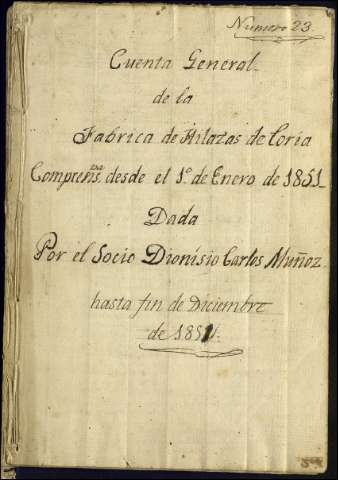 Numero 23
Cuenta General
de la
Fabrica de Hilazas de Coria
Comprensva desde el 1º de Enero de 1851
Dada
Por el Socio Dionisio Carlos Muñoz
hasta fin de Diciembre
de 1851.